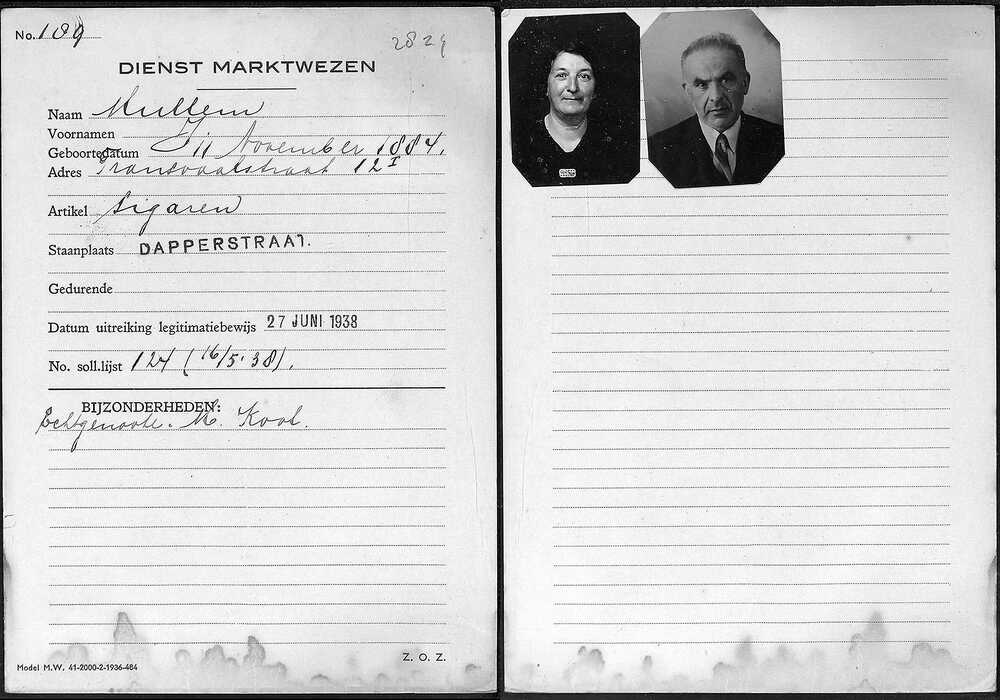 No. 189
2824
DIENST MARKTWEZEN
Naam Mullem
Voornamen
Geboortedatum 11 November 1884.
Adres Transvaalstraat 12 I
Artikel Sigaren
Staanplaats DAPPERSTRAAT.
Gedurende
Datum uitreiking legitimatiebewijs 27 JUNI 1938
No. soll.lijst 124 (16/5.'38).
BIJZONDERHEDEN:
Echtgenoote. M. Kool.
Model M.W. 41-2000-2-1936-484
Z. O. Z.